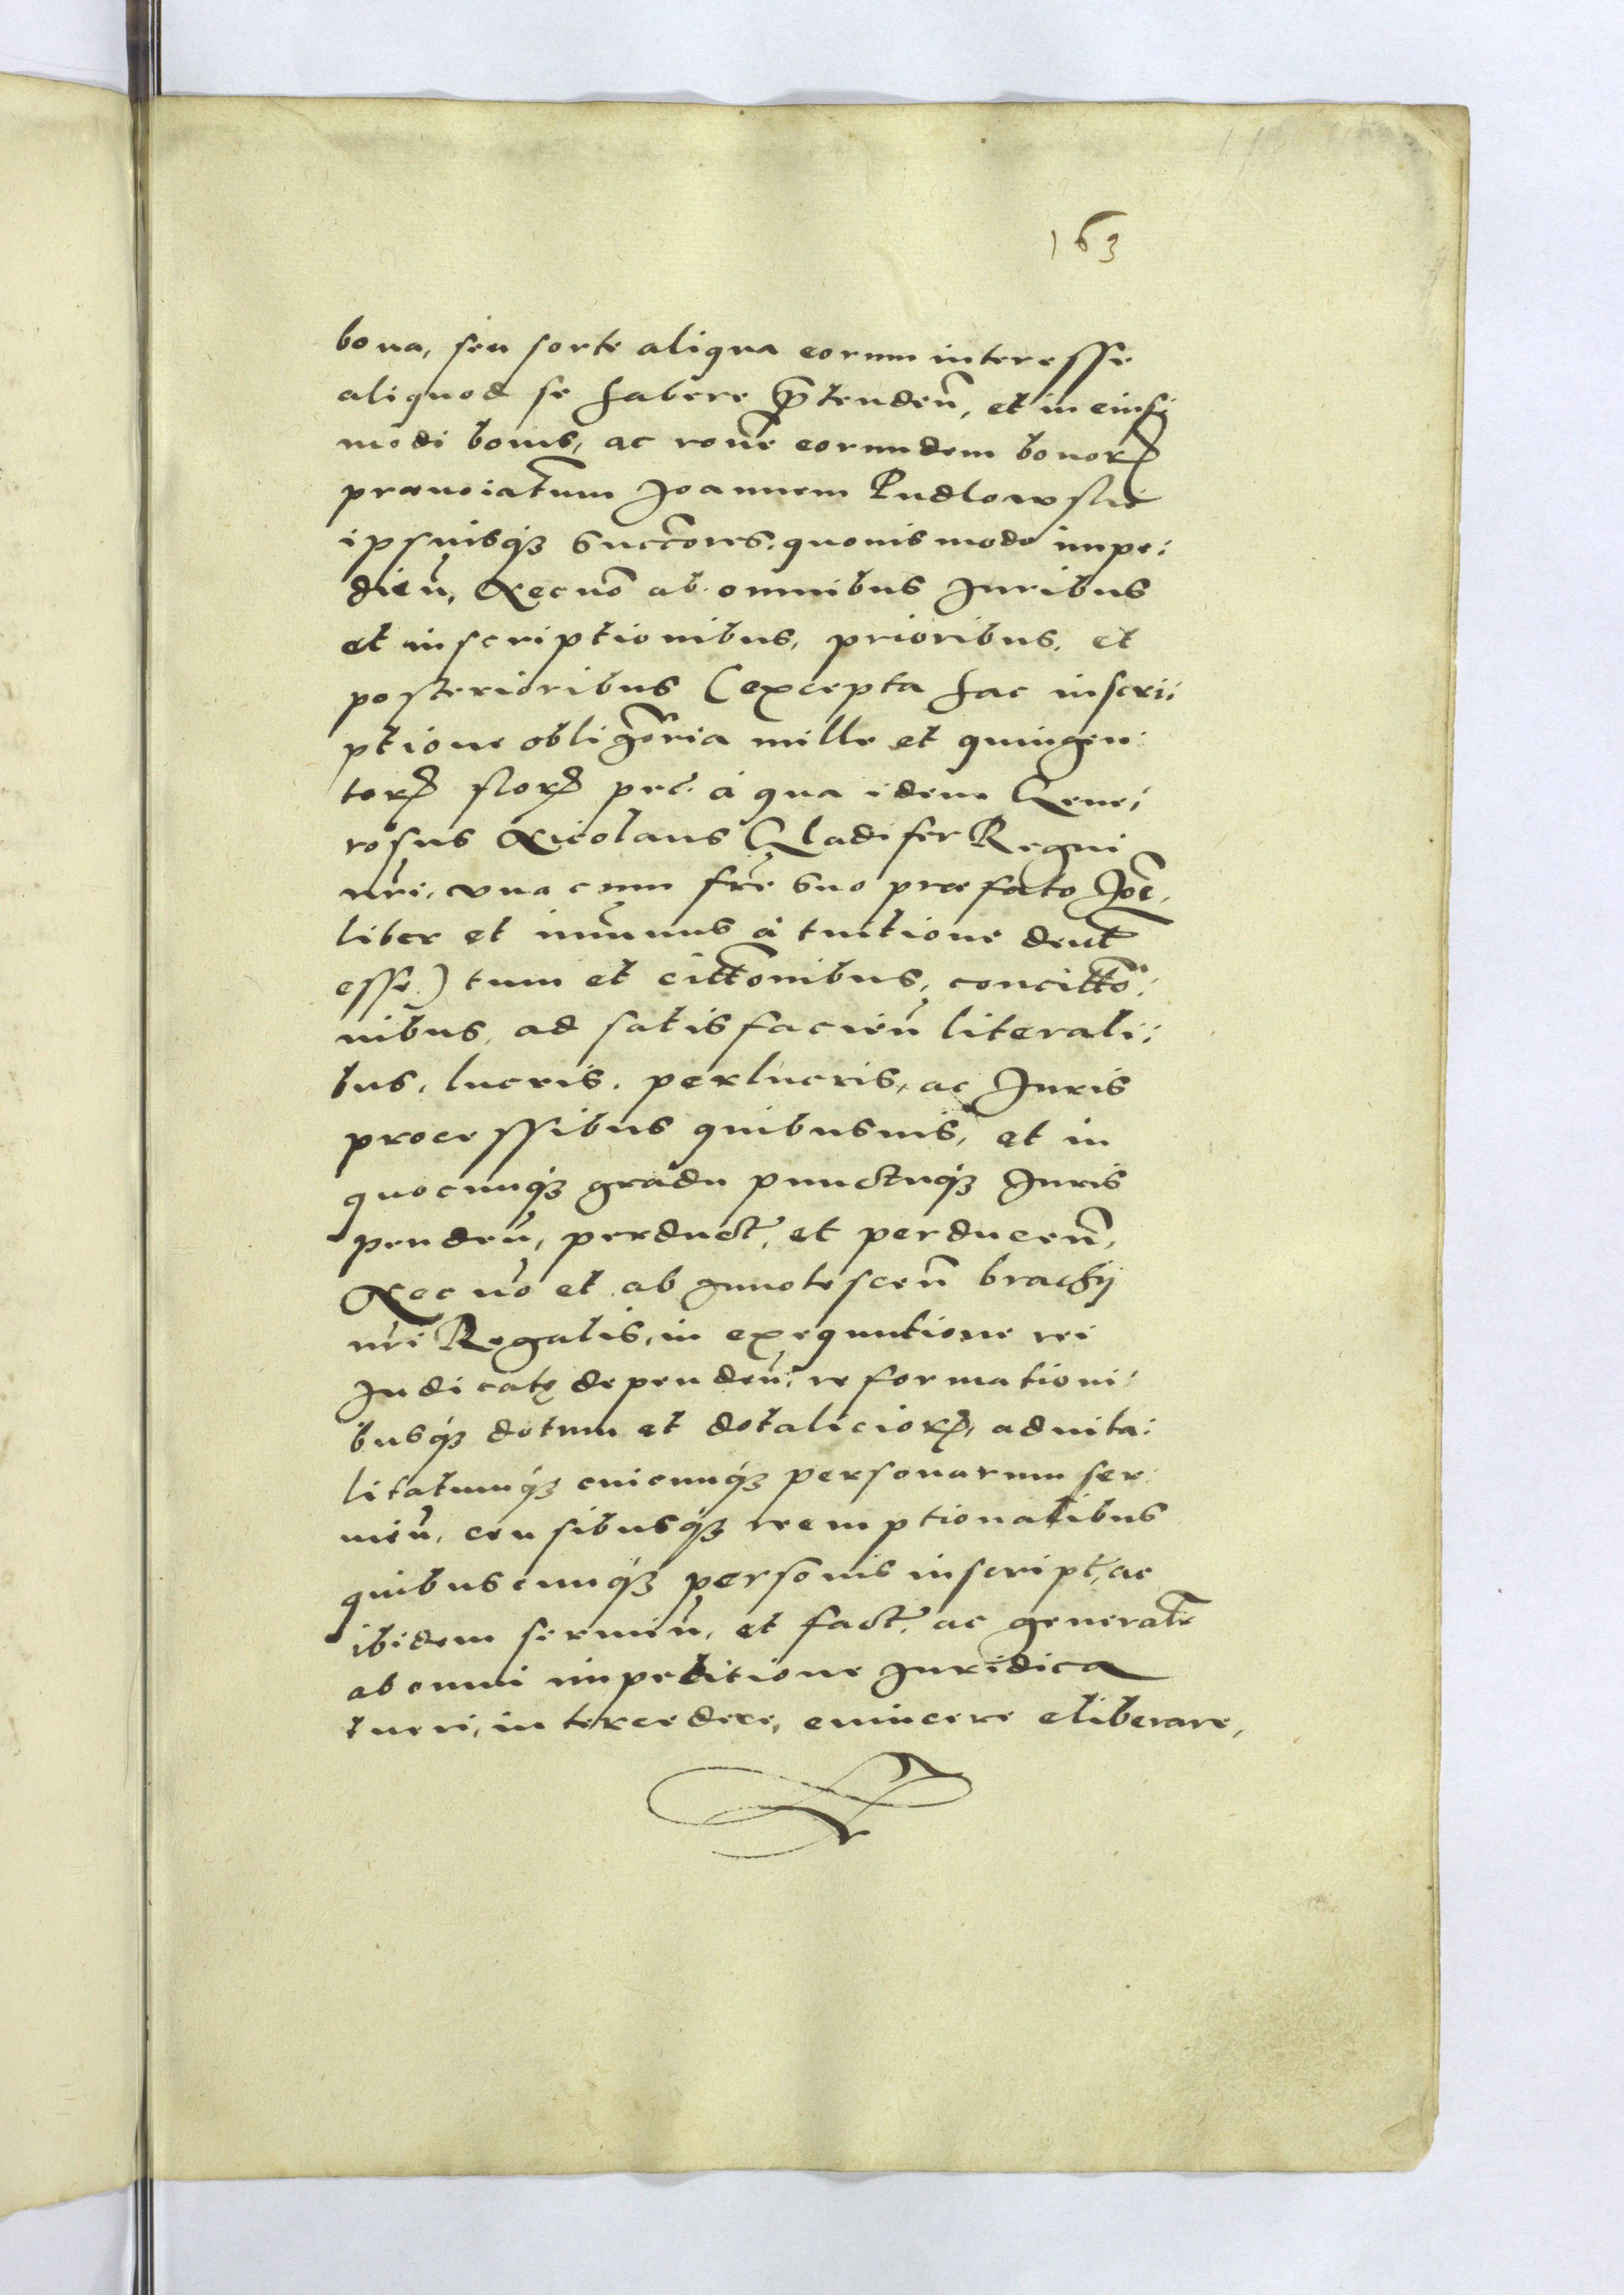 163
bona, seu sorte aliqua eorum interesse
aliquod se habere p̄tendeñ, et in eius⸗
modi bonis, ac rone eorundem bonorꝝ
prænoiatum Joannem Pudlowski
ipsuisq́ꝫ Succores, quouis modo impe:
dieñ, Necno ab omnibus Juribus
et inscriptionibus, prioribus, et
posterioribus (excepta hac inscri:
ptione obligr̃oria mille et quingen:
torꝝ florꝝ pec̃. à qua idem Gene:
rosus Nicolaus Gladifer Regni
nr̃i, vna cum fr̃e Suo præfato Joe,
liber et im̃unus à tuitione deb̃t
esse) tum et cittõnibus, concittõ:
nibus, ad satisfacieñ literali:
bus, lucris, perlucris, ac Juris
processibus quibusuis, et in
quocunq́ꝫ gradu punctuq́ꝫ Juris
pendeñ, perduct, et perduceñ,
Nec no et ab Innotesceñ brachij
nr̃i Regalis, in exequutione rei
Judicatę dependeñ, reformationi:
busq́ꝫ dotum et dotaliciorꝝ, aduita:
litatumq́ꝫ cuicunq́ꝫ personarum ser:
uieñ, censibusq́ꝫ reemptionalibus
quibuscunq́ꝫ personis inscript, ac
ibidem seruieñ, et fact, ac generalr̃
ab omni impeditione Juridica
tueri, intercedere, euincere eliberare,